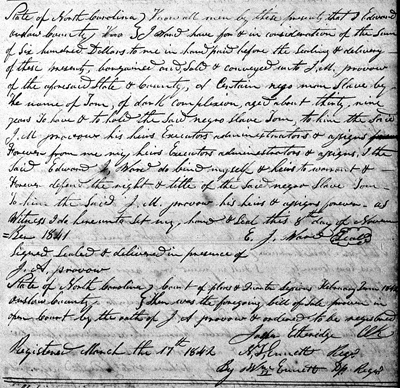 State of North Carolina } Know all men by these presents, that I Edward
Onslow County } Ward have for & in consideration of the sum
of Six hundred Dollars to me in hand paid before the sealing & delivery
of these presents, bargained and Sold & conveyed unto J. M. provow
of the aforesaid State & County, A Certain negro man Slave by
the name of Tom, of dark complexion, aged about thirty nine
years To have & to hold the said negro slave Tom, to him the said
J. M. provow his heirs Executors administrators & assigns
Forever from me my heirs Executors administrators & assigns, I the
said Edward J. Ward do bind myself & heirs to warrant &
Forever defend the right & title of the Said negro Slave Tom
to him the said J. M. provow his heirs & assigns forever. as
Witness I do hereunto Set my hand & Seal this 8th day of Novem
=ber 1841 E. J. Ward (Seal)
Signed Sealed & delivered in presence of
J. A. provow
State of North Carolina } Court of pleas & Quarter Sessions February Term 1842
Onslow County } Then was the foregoing bill of Sale proven in
open Court by the oath of J. A provow & ordered to be registered
Jasper Etheridge Clk
Registered March the 17th 1842 Ennett Regr
By Ennett Regr